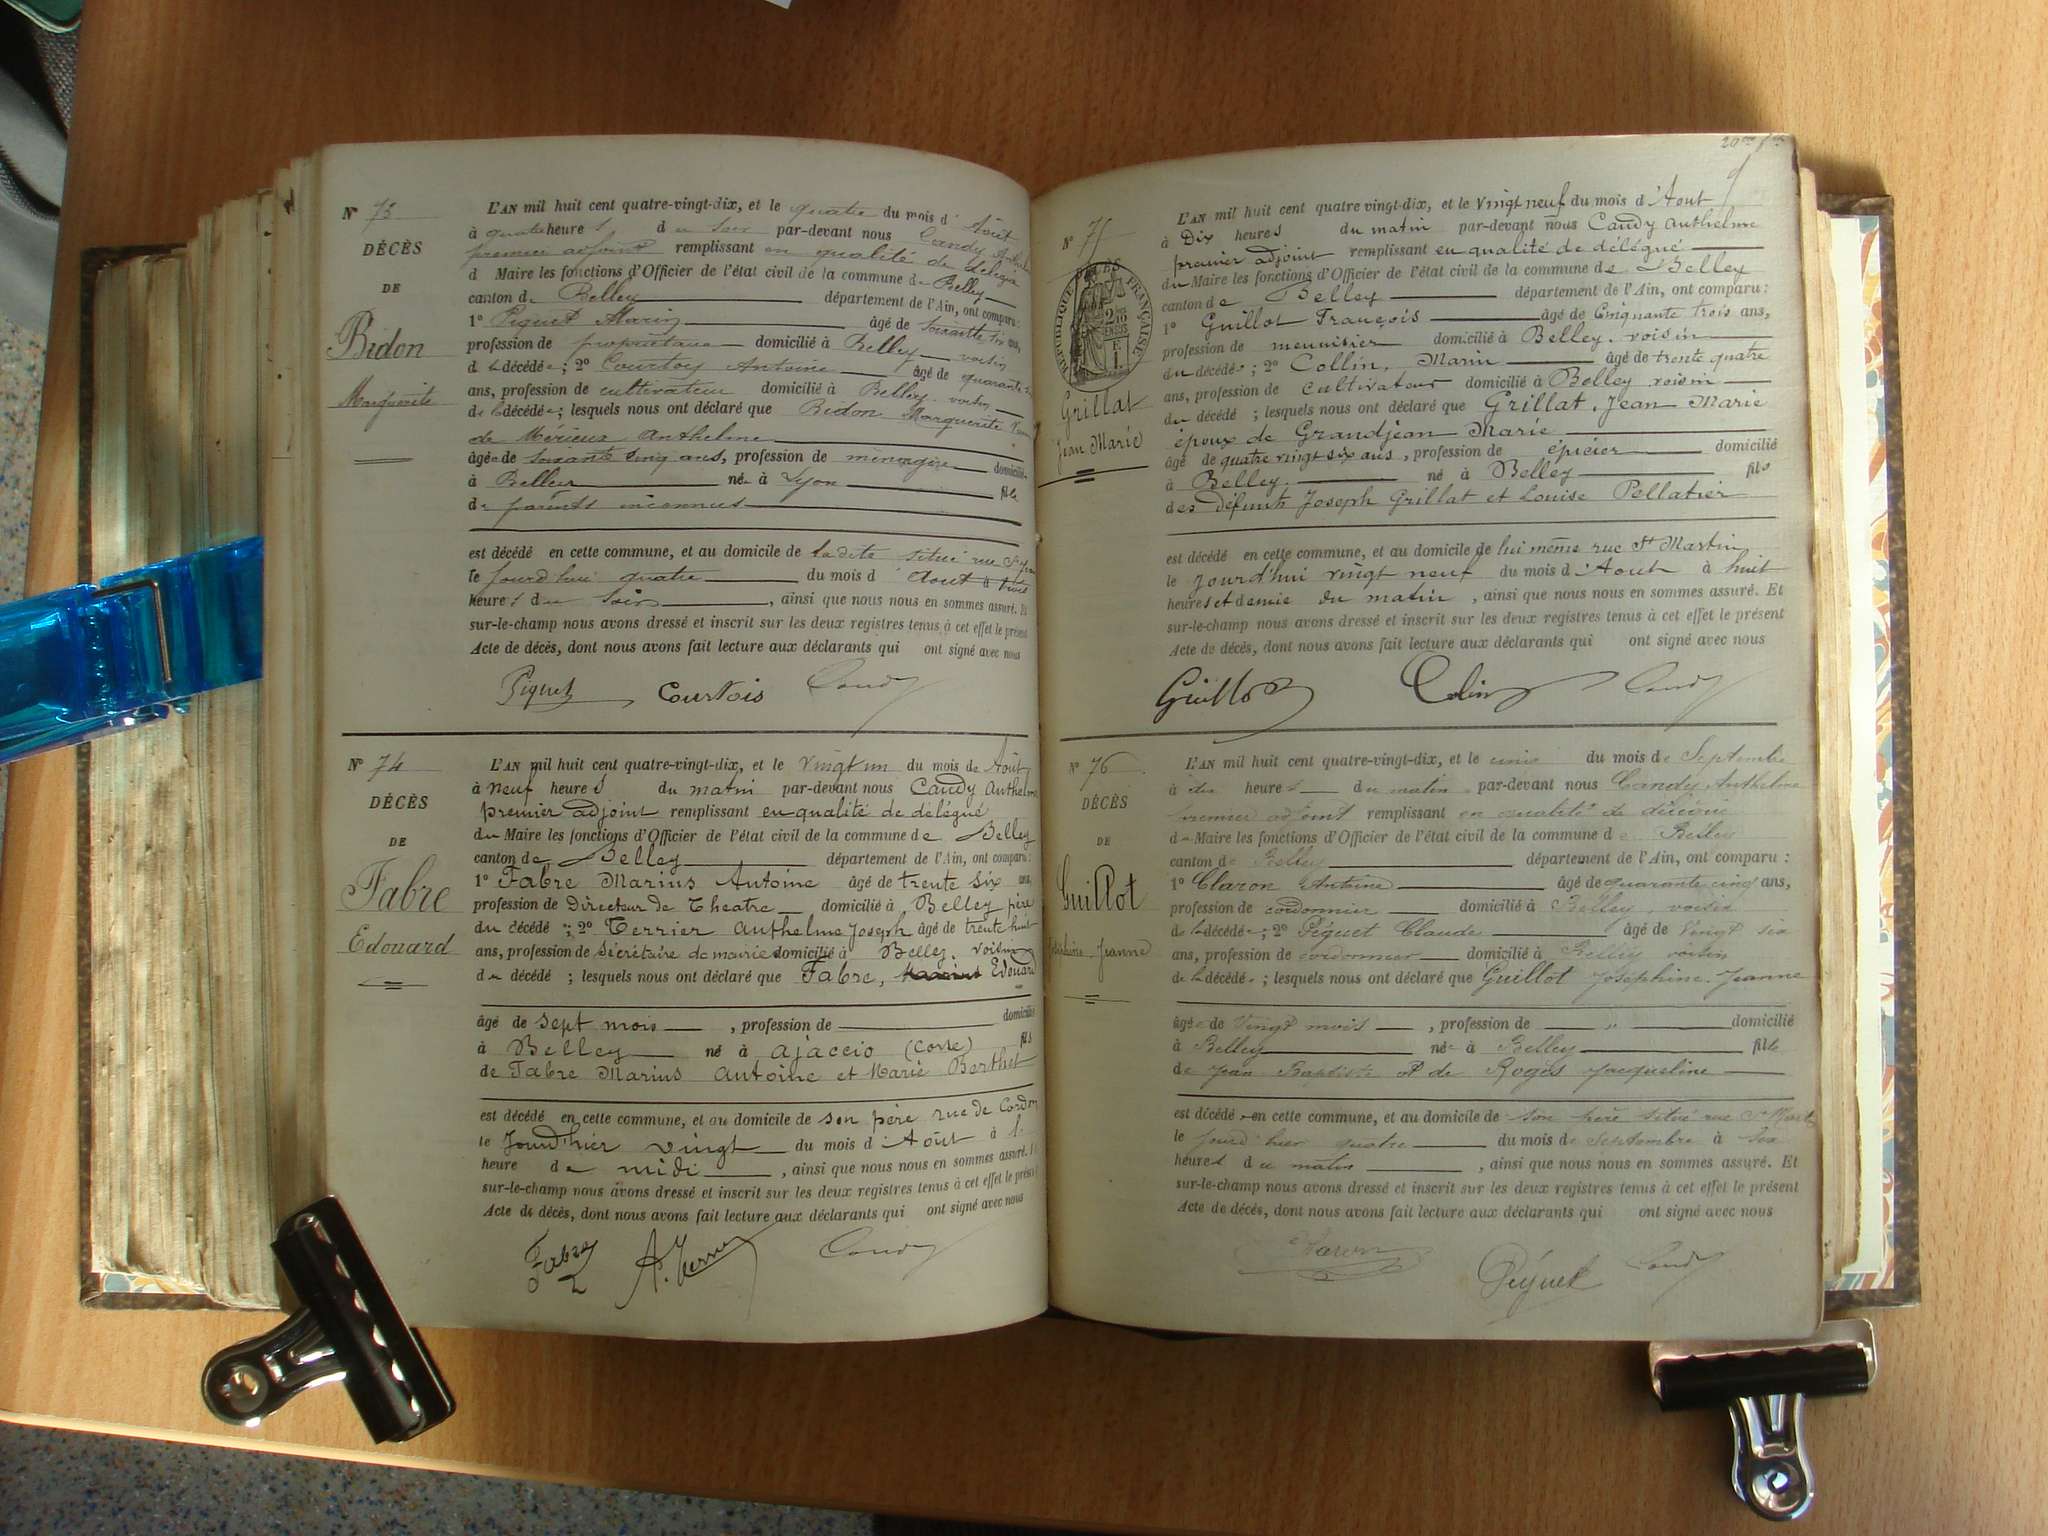 Nº 73
DÉCÈS
DE
Bidon
Marguerite
L'AN mil huit cent quatre-vingt-dix, et le quatre du mois d'Août
à quatre heures du soir par-devant nous Candy Anthelme
premier adjoint remplissant en qualité de délégué
d Maire les fonctions d'Officier de l'état civil de la commune de Belley
canton de Belley département de l'Ain, ont comparu :
1º Piquet Marin âgé de soixante six ans,
profession de propriétaire domicilié à Belley voisin
d la décédée ; 2º Courtois Antoine âgé de quarante
ans, profession de cultivateur domicilié à Belley. voisin
de la décédée ; lesquels nous ont déclaré que Bidon Marguerite
de Mérieux Anthelme
âgée de soixante cinq ans, profession de ménagère domiciliée
à Belley née à Lyon fille
de parents inconnus
est décédé en cette commune, et au domicile de ladite situé rue
le jourd'hui quatre du mois d'Aout à trois
heures du soir, ainsi que nous nous en sommes assuré. Et
sur-le-champ nous avons dressé et inscrit sur les deux registres tenus à cet effet le présent
Acte de décès, dont nous avons fait lecture aux déclarants qui ont signé avec nous
Piquet Courtois Candy
Nº 74
DÉCÈS
DE
Fabre
Edouard
L'AN mil huit cent quatre-vingt-dix, et le vingt un du mois de Août
à neuf heures du matin par-devant nous Candy Anthelme
premier adjoint remplissant en qualité de délégué
du Maire les fonctions d'Officier de l'état civil de la commune de Belley
canton de Belley département de l'Ain, ont comparu :
1º Fabre Marius Antoine âgé de trente six ans,
profession de Directeur de Theatre domicilié à Belley père
du décédé ; 2º Terrier Anthelme Joseph âgé de trente huit
ans, profession de Sécrétaire de mairie domicilié à Belley. voisin
du décédé ; lesquels nous ont déclaré que Fabre, Edouard
âgé de sept mois, profession de domicilié
à Belley né à Ajaccio (Corse) fils
de Fabre Marius Antoine et Marie Berthet
est décédé en cette commune, et au domicile de son père rue de Cordon
le Jourd'hier vingt du mois d'Août à
heure de midi, ainsi que nous nous en sommes assuré.
sur-le-champ nous avons dressé et inscrit sur les deux registres tenus à cet effet le présent
Acte de décès, dont nous avons fait lecture aux déclarants qui ont signé avec nous
Fabre A. Terrier Candy
Nº 75
DÉCÈS
RÉPUBLIQUE FRANÇAISE
Grillat
Jean Marie
L'AN mil huit cent quatre-vingt-dix, et le vingt neuf du mois d'Aout
à Dix heures du matin par-devant nous Candy Anthelme
premier adjoint remplissant en qualité de délégué
du Maire les fonctions d'Officier de l'état civil de la commune de Belley
canton de Belley département de l'Ain, ont comparu :
1º Guillot François âgé de Cinquante trois ans,
profession de meunisier domicilié à Belley. voisin
du décédé ; 2º Collin, Marin âgé de trente quatre
ans, profession de cultivateur domicilié à Belley voisin
du décédé ; lesquels nous ont déclaré que Grillat, Jean Marie
époux de Grandjean Marie
âgé de quatre vingt six ans, profession de épicier domicilié
à Belley. né à Belley fils
des défunts Joseph Grillat et Louise Pellatier
est décédé en cette commune, et au domicile de lui même rue St Martin
le Jourd'hui vingt neuf du mois d'Aout à huit
heures et demie du matin, ainsi que nous nous en sommes assuré. Et
sur-le-champ nous avons dressé et inscrit sur les deux registres tenus à cet effet le présent
Acte de décès, dont nous avons fait lecture aux déclarants qui ont signé avec nous
Guillot Colin Candy
Nº 76
DÉCÈS
DE
Guillot
Joséphine. Jeanne
L'AN mil huit cent quatre-vingt-dix, et le du mois de Septembre
à dix heures du matin par-devant nous Candy Anthelme
premier adjoint remplissant en qualité de délégué
d Maire les fonctions d'Officier de l'état civil de la commune de Belley
canton de Belley département de l'Ain, ont comparu :
1º Claron Antoine âgé de quarante cinq ans,
profession de cordonnier domicilié à Belley, voisin
de la décédée ; 2º Péquet Claude âgé de vingt six
ans, profession de cordonnier domicilié à Belley voisin
de la décédée ; lesquels nous ont déclaré que Guillot Joséphine. Jeanne
âgée de vingt mois, profession de " domicilié
à Belley née à Belley fille
de Jean Baptiste et de Rogès Jacqueline
est décédée en cette commune, et au domicile de son père situé rue St Martin
le jourd'hier quatre du mois de Septembre à six
heures du matin, ainsi que nous nous en sommes assuré. Et
sur-le-champ nous avons dressé et inscrit sur les deux registres tenus à cet effet le présent
Acte de décès, dont nous avons fait lecture aux déclarants qui ont signé avec nous
Claron Péquet Candy